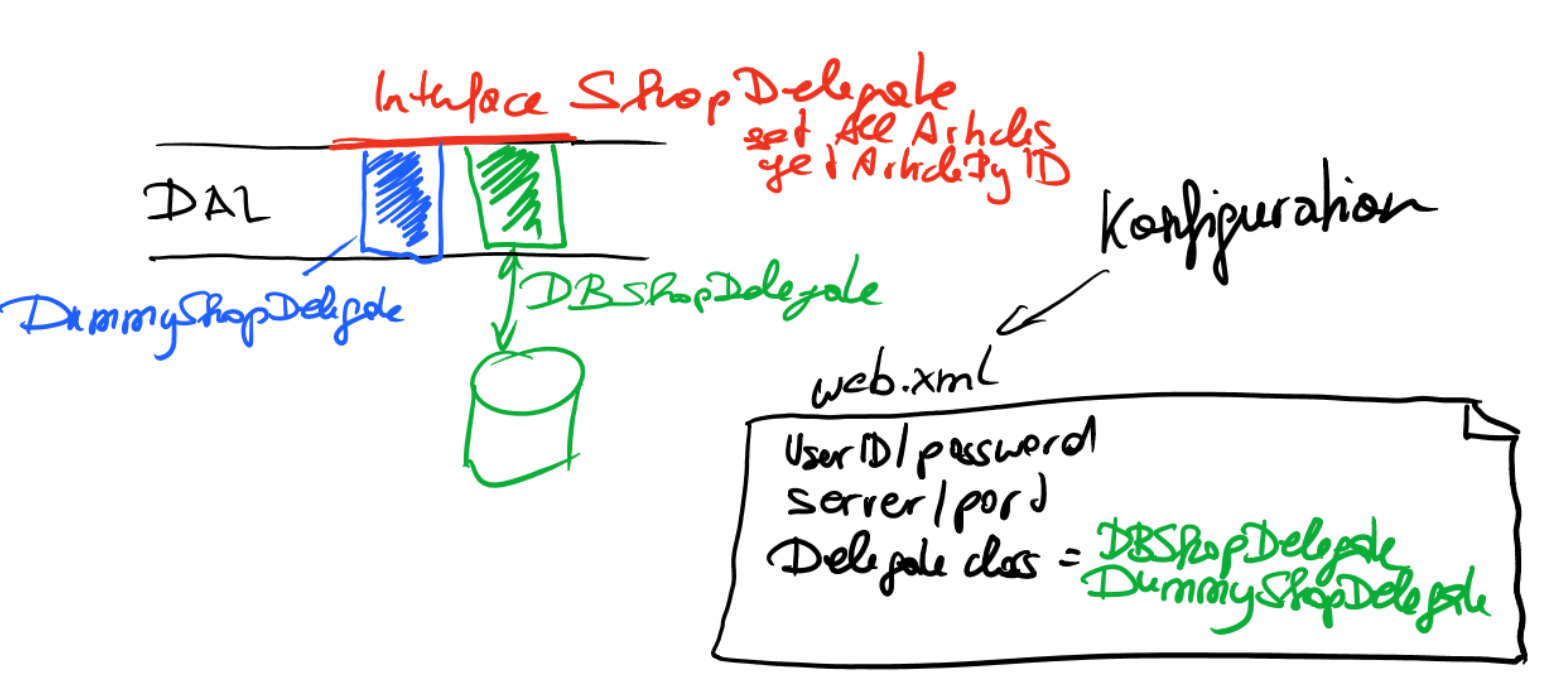 Interface ShopDelegate
get All Articles
get ArticleBy ID
DAL
Konfiguration
DBShopDelegate
DummyShopDelegate
web.xml
UserID/password
Server/port
Delegate class = DBShopDelegate
DummyShopDelegate